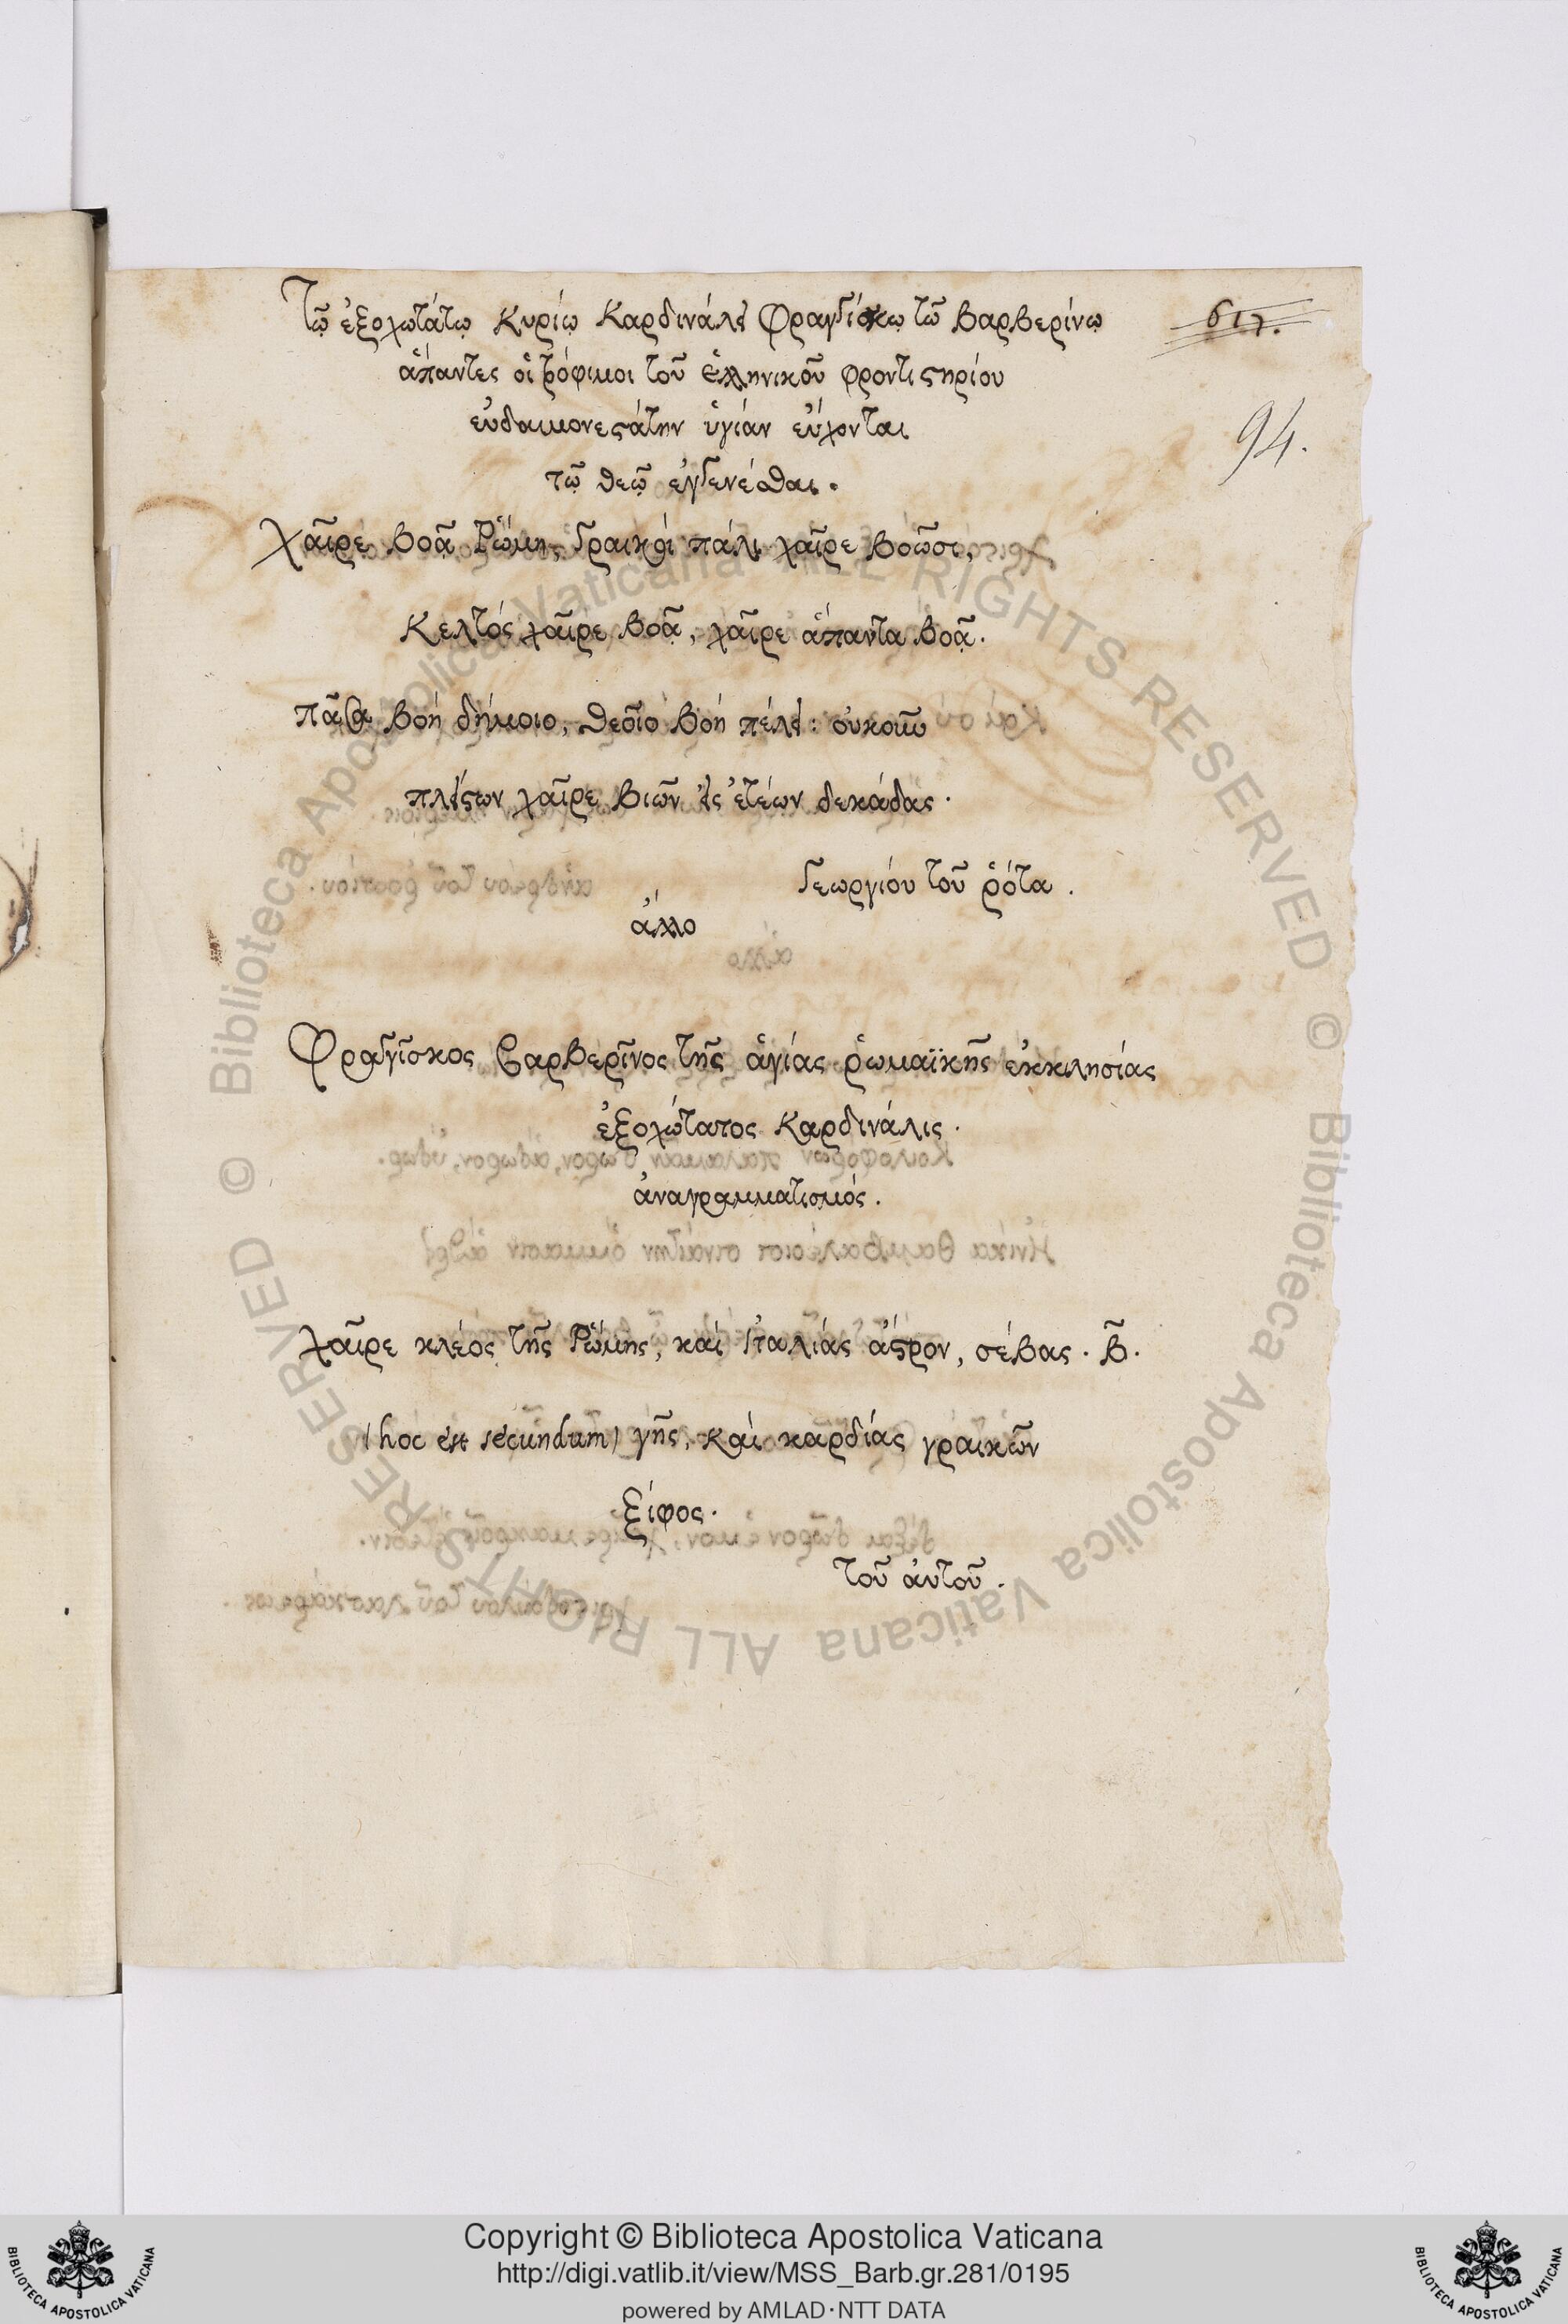 Τῷ ἐξοχωτάτῳ Κυρίῳ Καρδινάλει Φραγγίσκῳ τῶ Βαρβερίνῳ
617.
ἅπαντες οἱ τρόφιμοι τοῦ ἑλληνικοῦ φροντιστηρίου
εὐδαιμονεστάτην ὑγιάν εὔχονται
94.
τῷ θεῷ ἐγγενέσθαι.
Χαῖρε βοᾷ Ῥώμης, Γραικοὶ πάλι χαῖρε βοῶσι,
Κελτός χαῖρε βοᾷ, χαῖρε ἅπαντα βοᾷ.
πᾶσα βοή δήμοιο, θεοῖο βοή πέλει: οὐκοῦν
πλείστων χαῖρε βιῶν εἰς ἐτέων δεκάδας.
Γεωργίου τοῦ ῥότα.
ἄλλο
Φραγγῖσκος βαρβερῖνος τῆς ἁγίας ῥωμαϊκῆς ἐκκλησίας
ἐξοχώτατος Καρδινάλις.
ἀναγραμματισμός.
χαῖρε κλέος τῆς Ῥώμης, καὶ Ἰταλιάς ἄστρον, σέβας. β̃.
(hoc est secundum) γῆς, καὶ καρδίας γραικῶν
ξίφος.
τοῦ αὐτοῦ.
© Biblioteca Apostolica Vaticana ALL RIGHTS RESERVED © Biblioteca Apostolica Vaticana ALL RIGHTS RESERVED
Copyright © Biblioteca Apostolica Vaticana
http://digi.vatlib.it/view/MSS_Barb.gr.281/0195
powered by AMLAD·NTT DATA
BIBLIOTECA APOSTOLICA VATICANA
BIBLIOTECA APOSTOLICA VATICANA